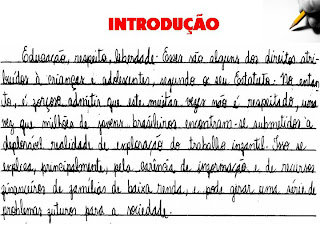 INTRODUÇÃO
Educação, respeito, liberdade. Esses são alguns dos direitos atri-
buídos à crianças e adolescentes, segundo o seu Estatuto. No entan-
to, é forçoso admitir que este muitas vezes não é respeitado, uma
vez que milhões de jovens brasileiros encontram-se submetidos a
deplorável realidade de exploração do trabalho infantil. Isso se
explica, principalmente, pela carência de informação e de recursos
financeiros de famílias de baixa renda, e pode gerar uma série de
problemas futuros para a sociedade.